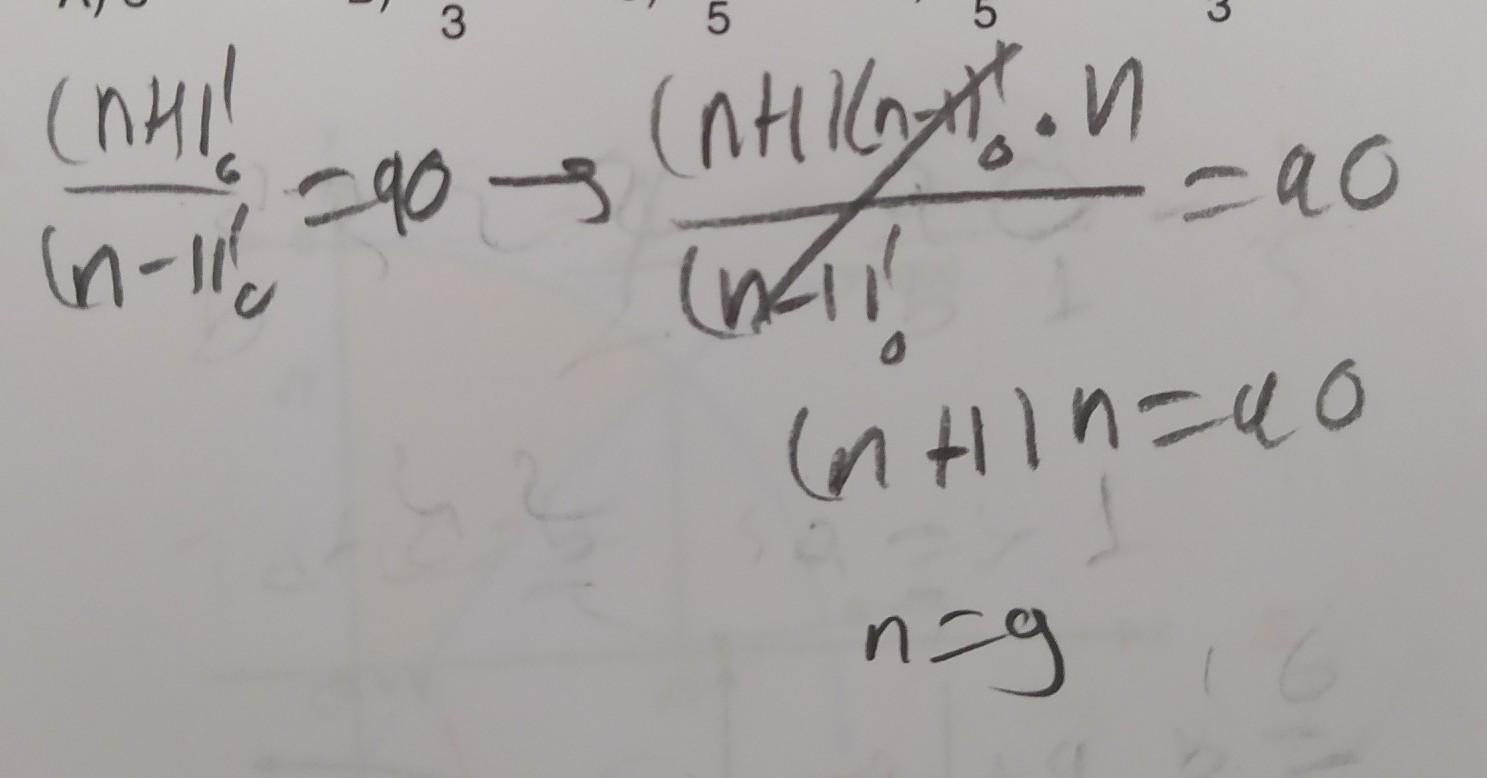 3 5 5 3
(n+1)! / (n-1)! = 90 → (n+1)(n-1)! . n / (n-1)! = 90
(n+1) n = 90
n = 9